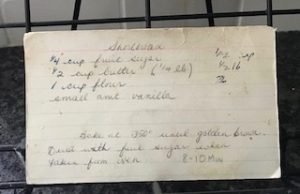 Shortbread
1/4 cup fruit sugar
1/2 cup butter (1/4 lb)
1/2 lb
1 cup flour
small amt vanilla
Bake at 350° until golden brown.
Dust with fruit sugar when
taken from oven 8-10 Min